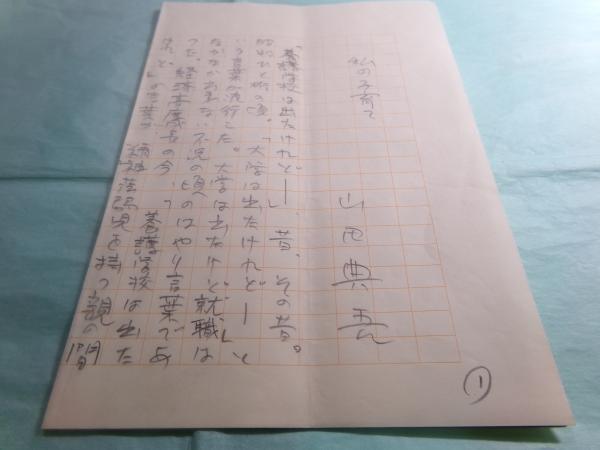 私の子育て
山田典吾
「養護学校は出たけれど――」、昔、その昔。
昭和ひと桁の頃。「大学は出たけれど――」と
いう言葉が流行した。大学は出たけど就職は
なかなか出来ない不況の頃のはやり言葉であ
った。経済高度成長の今、「養護学校は出た
けれど」の言葉が、精神薄弱児を持つ親の間
①